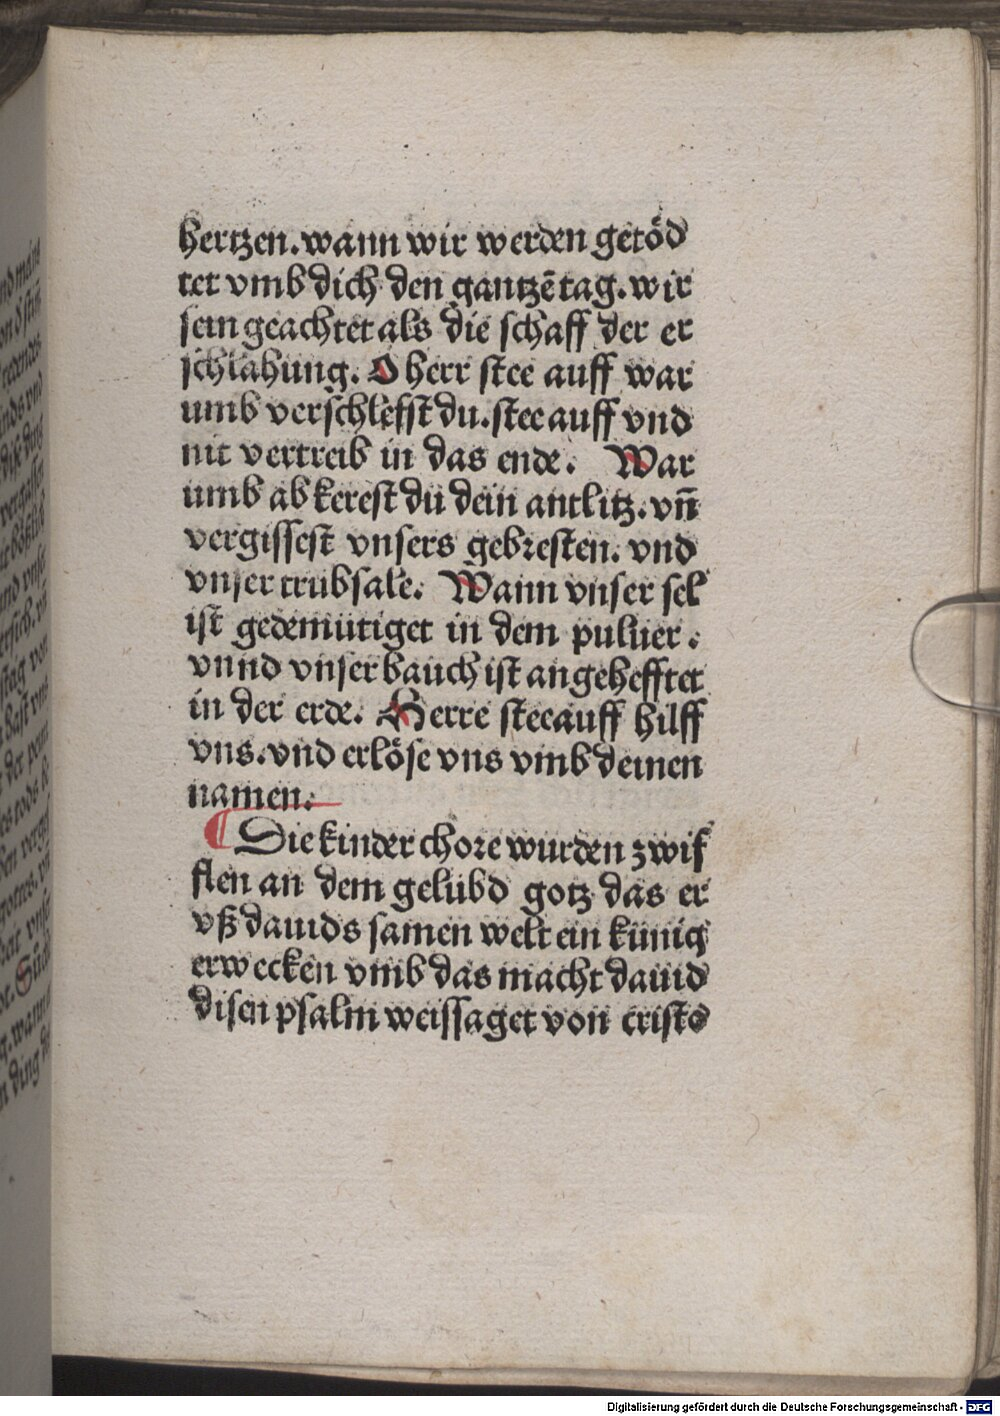 hertzen. wann wir werden getöd
tet vmb dich den gantzē tag. wir
sein geachtet als die schaff der er
schlahung. O herr stee auff war
umb verschlefst du. stee auff vnd
nit vertreib in das ende. War
umb ab kerest du dein antlitz. vn̄
vergissest vnsers gebresten. vnd
vnser trübsale. Wann vnser sel
ist gedemütiget in dem puluer.
vnnd vnser bauch ist angehefftet
in der erde. Herre stee auff hilff
vns. vnd erlöse vns vmb deinen
namen.
¶ Die kinder chore wurden zwif
flen an dem gelübd gotz das er
vß dauids samen welt ein künig
erwecken vmb das macht dauid
disen psalm weissaget von cristo
Digitalisierung gefördert durch die Deutsche Forschungsgemeinschaft - DFG